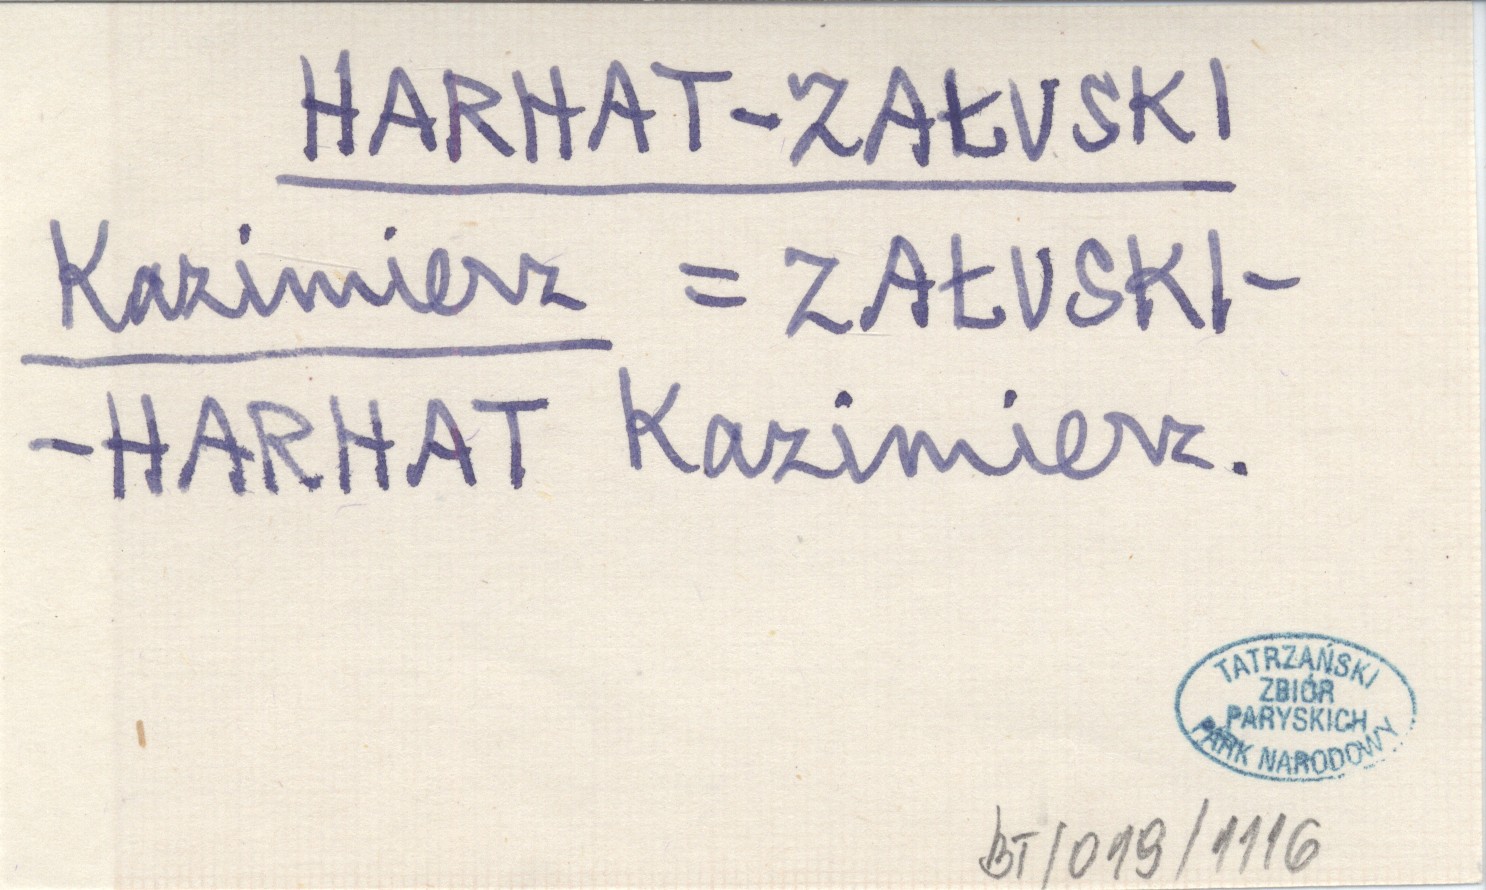 HARHAT-ZAŁUSKI
Kazimierz = ZAŁUSKI-
-HARHAT Kazimierz.
TATRZAŃSKI
ZBIÓR
PARYSKICH
PARK NARODOWY
BT/019/1116